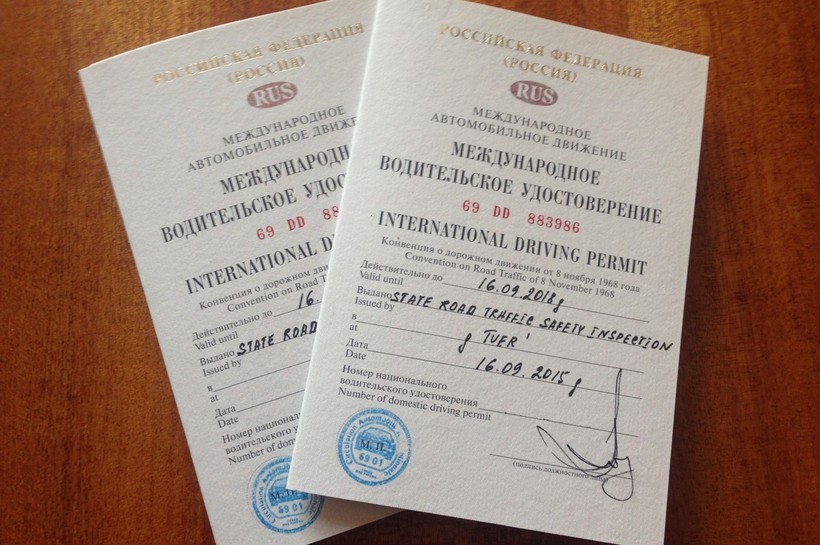 РОССИЙСКАЯ ФЕДЕРАЦИЯ
(РОССИЯ)
RUS
МЕЖДУНАРОДНОЕ
АВТОМОБИЛЬНОЕ ДВИЖЕ
МЕЖДУНАРОДН
ВОДИТЕЛЬСКОЕ УДОС
69 DD 88
INTERNATIONAL DR
Конвенция о дорожном движени
Convention on Road Traf
Действительно до 16.
Valid until
Выдано STATE ROAD
Issued by
в
at
Дата
Date
Номер национального
водительского у
Number of domes
М. П.
69 01
РОССИЙСКАЯ ФЕДЕРАЦИЯ
(РОССИЯ)
RUS
МЕЖДУНАРОДНОЕ
АВТОМОБИЛЬНОЕ ДВИЖЕНИЕ
МЕЖДУНАРОДНОЕ
ВОДИТЕЛЬСКОЕ УДОСТОВЕРЕНИЕ
69 DD 883986
INTERNATIONAL DRIVING PERMIT
Конвенция о дорожном движении от 8 ноября 1968 года
Convention on Road Traffic of 8 November 1968
Действительно до 16.09.2018г
Valid until
Выдано STATE ROAD TRAFFIC SAFETY INSPECTION
Issued by
в г TVER'
at
Дата 16.09.2015г
Date
Номер национального
водительского удостоверения
Number of domestic driving permit
М. П.
69 01
(подпись должностного лица)